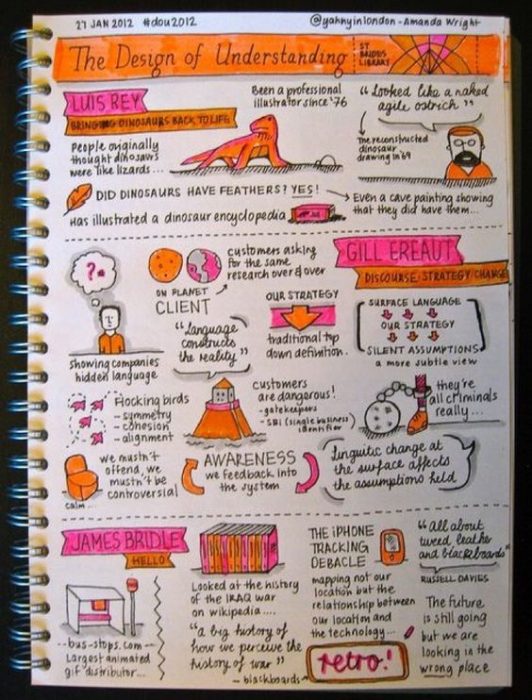 27 JAN 2012 #dou2012
@yahnyinlondon - Amanda Wright
The Design of Understanding
ST BRIDES LIBRARY
LUIS REY
BRINGING DINOSAURS BACK TO LIFE
Been a professional
illustrator since '76
"Looked like a naked
agile ostrich"
People originally
thought dinosaurs
were like lizards...
The reconstructed
dinosaur
drawing in '69
DID DINOSAURS HAVE FEATHERS? YES!
Even a cave painting showing
that they did have them...
Has illustrated a dinosaur encyclopedia
?
showing companies
hidden language
ON PLANET
CLIENT
customers asking
for the same
research over & over
GILL EREAUT
DISCOURSE, STRATEGY, CHANGE
"Language
constructs
the reality"
OUR STRATEGY
traditional top
down definition.
SURFACE LANGUAGE
OUR STRATEGY
SILENT ASSUMPTIONS
a more subtle view
Flocking birds
- symmetry
- cohesion
- alignment
customers
are dangerous!
- gatekeepers
- SBI (single business
identifier)
they're
all criminals
really...
we mustn't
offend, we
mustn't be
controversial
calm...
AWARENESS
we feedback into
the system
linguistic change at
the surface affects
the assumptions held
JAMES BRIDLE
HELLO
--bus-stops.com--
Largest animated
gif distributor...
Looked at the history
of the IRAQ war
on wikipedia....
"a big history of
how we perceive the
history of war"
- blackboards
THE iPHONE
TRACKING
DEBACLE
mapping not our
location but the
relationship between
our location and
the technology...
retro!
"All about
tweed, leather
and blackboards"
RUSSELL DAVIES
The future
is still going
but we are
looking in the
wrong place